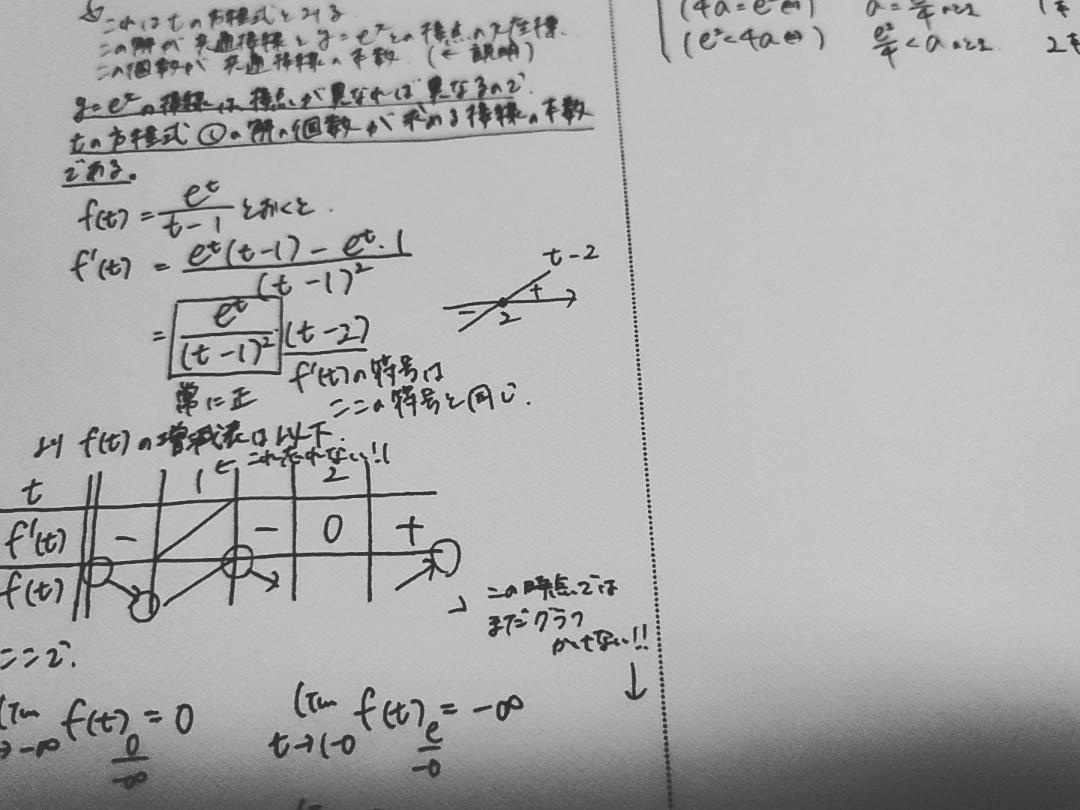 これは tの方程式とみる
この解が 共通接線と y=e^x との接点のx座標.
この個数が 共通接線の本数. (← 説明)
y=e^xの接線は、接点が異なれば異なるので.
tの方程式①の解の個数が 求める接線の本数
である。
f(t) = e^t/(t-1) とおくと.
f'(t) = (e^t(t-1) - e^t・1)/(t-1)^2
= e^t/(t-1)^2・(t-2)
常に正
f'(t)の符号は
ここの符号と同じ.
t-2
- + 2
より f(t)の増減表は以下.
← これ忘れない!!
t 1 2
f'(t) - / - 0 +
f(t) ↘ / ↘ ↗
→ この時点では
まだグラフ
かけない!!
↓
ここで.
lim t→-∞ f(t) = 0
0/-∞
lim t→1-0 f(t) = -∞
e/-0
(4a=e^2⇔) a=e^2/4 のとき
(e^2<4a⇔) e^2/4<a のとき 2本